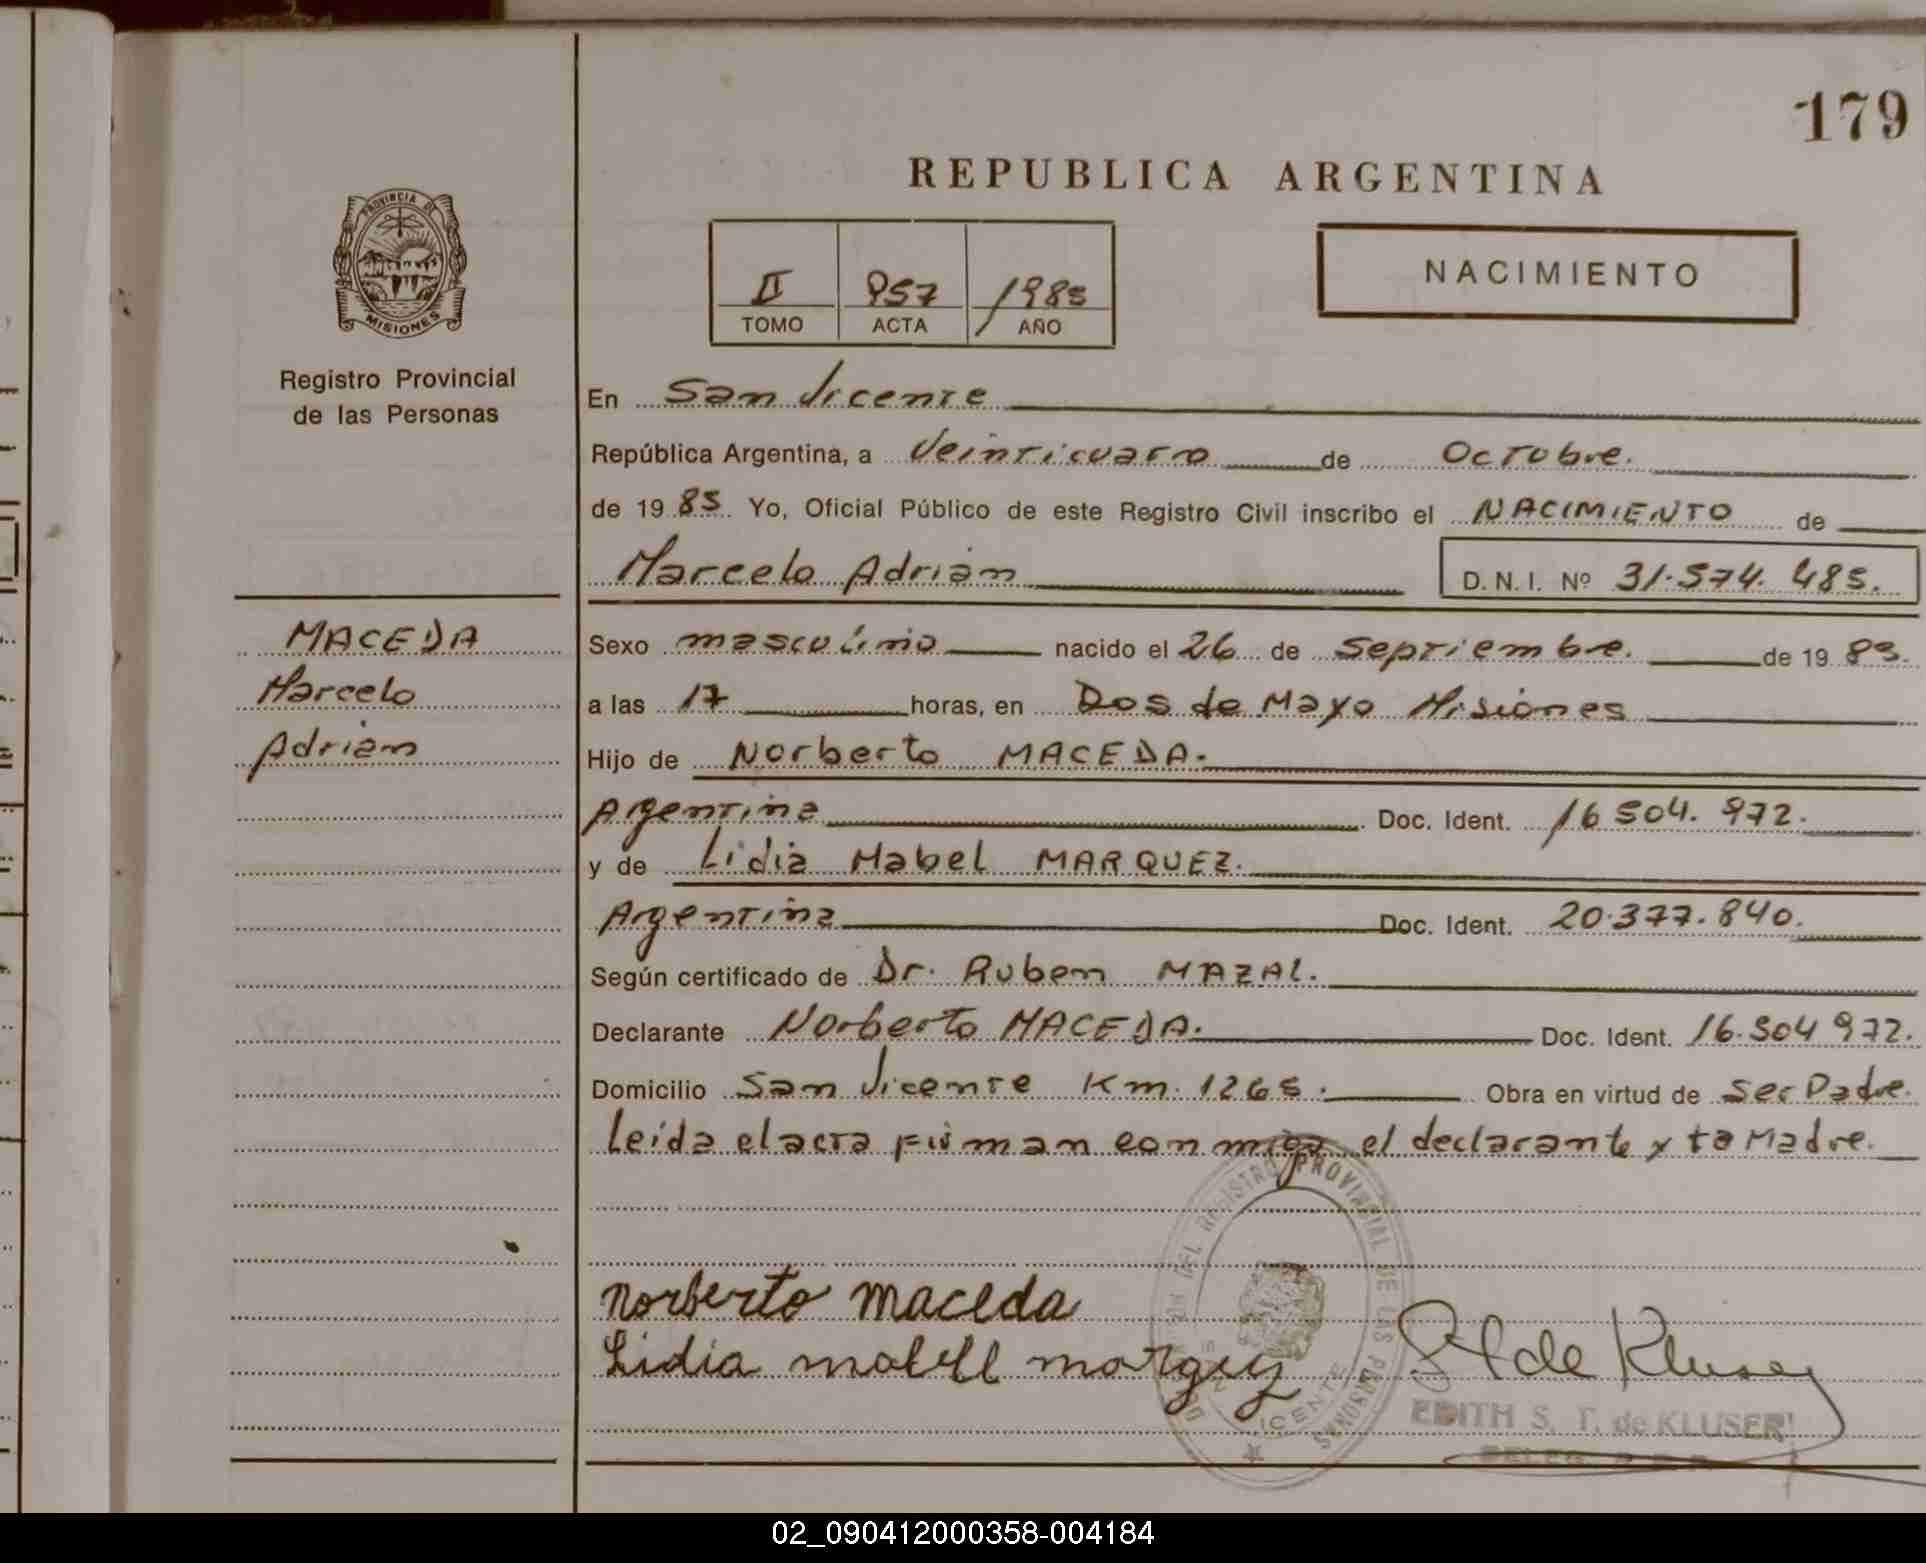 179
REPUBLICA ARGENTINA
PROVINCIA DE
MISIONES
II 957 1985
TOMO ACTA AÑO
NACIMIENTO
Registro Provincial
de las Personas
En San Vicente
República Argentina, a Veinticuatro de Octubre.
de 19 85 Yo, Oficial Público de este Registro Civil inscribo el NACIMIENTO de
Marcelo Adrián D.N.I. Nº 31.574.485.
MACEDA
Marcelo
Adrián
Sexo masculino nacido el 26 de Septiembre. de 19 85.
a las 17 horas, en Dos de Mayo Misiones
Hijo de Norberto MACEDA.
Argentina Doc. Ident. 16 504.972.
y de Lidia Mabel MARQUEZ.
Argentina Doc. Ident. 20.377.840.
Según certificado de Dr. Ruben MAZAL.
Declarante Norberto MACEDA. Doc. Ident. 16.504 972.
Domicilio San Vicente Km. 1265. Obra en virtud de Ser Padre.
Leída el acta firman conmigo el declarante y la Madre.
DEL REGISTRO PROVINCIAL DE LAS PERSONAS
Norberto Maceda
Lidia mabell marquez
de Kluser
EDITH S. T. de KLUSER
02_090412000358-004184